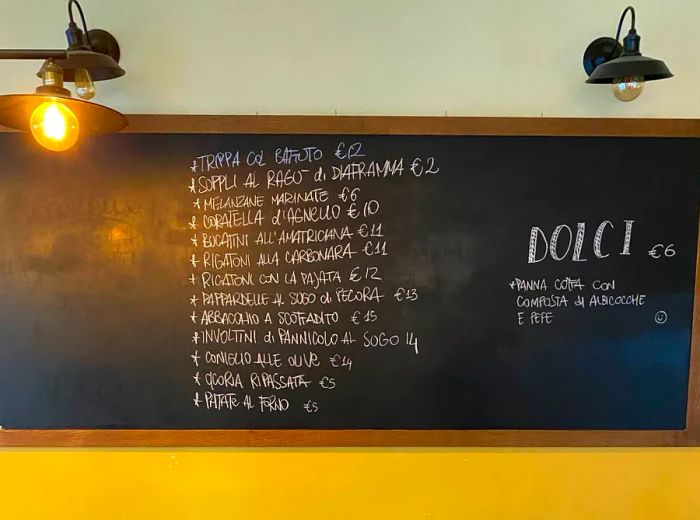 *TRIPPA COL BATTUTO €12
*SOPPLI AL RAGÙ di DIAFRAMMA €2
*MELANZANE MARINATE €6
*CORATELLA d'AGNELLO €10
*BUCATINI ALL'AMATRICIANA €11
*RIGATONI ALLA CARBONARA €11
*RIGATONI CON LA PAJATA €12
*PAPPARDELLE AL SUGO di PECORA €13
*ABBACCHIO A SCOTTADITO €15
*INVOLTINI di PANNICOLO AL SUGO 14
*CONIGLIO ALLE OLIVE €14
*CICORIA RIPASSATA €5
*PATATE AL FORNO €5
DOLCI €6
*PANNA COTTA CON
COMPOSTA di ALBICOCCHE
E PEPE